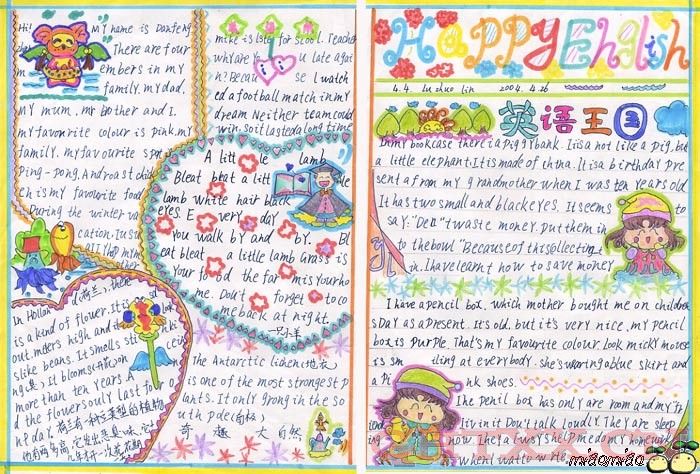 Hi! My name is Danfeng
There are four
embers in my
family. my dad.
my mum, my Bother and I.
my favourite colour is pink. my
family. my favourite sport
Ping-pong. And roast chick
en is my favourite food
During the winter vacation
mike is late for scool. Teacher
why are you late again
h? Because I watch
ed a football match in my
dream Neither team could
win. so it lasted a long time
A little lamb
Bleat beat a little
lamb white hair black
eyes. Every day
you walk by and by. Bl
eat bleat a little lamb Grass is
your food the farm is your ho
me. Don't forget to co
me back at night.
小羊
In Hollan (荷兰), there
is a kind of flower. It is
meters high and
slike beans. It smells sti
It blooms
more than ten years A
d the flowers only last fo
ne day.
the Antarctic lichen (地衣)
is one of the most strongest p
lants. It only grong in the so
uth pole (南极)
奇趣大自然
Happy English
4.4. Lu shuo lin 2004.4.26
英语王国
In my bookcase there is a piggy bank. It is a not like a pig, but
a little elephant. It is made of china. It is a birthday pre
sent a from my grandmother when I was ten years old
It has two small and black eyes. It seems to
say: "Don't waste money. Put them in
to the bowl" Because of this collecting
I have learnt how to save money
I have a pencil box, which mother bought me on children
s Day as a present. It's old, but it's very nice, my pencil
box is purple. That's my favourite colour. Look micky mouse
is smiling at every body. she's waring blue skirt and
a pink shoes.
The penil box has only are room and my
Don't talk loudly. They are sleep
now. They always help me do my homework
miaomiao